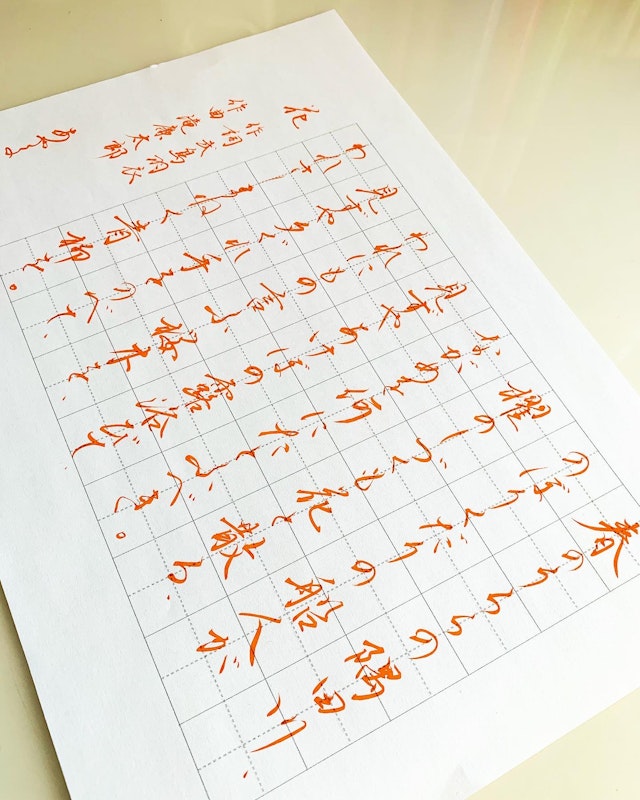 春のうらゝの隅田川、
のぼりくだりの船人が
櫂のしづくも花と散る、
ながめを何にたとふべき。
見ずやあけぼの露浴びて
われにもの言ふ桜木を、
見ずや夕ぐれ手をのべて
われさしまねく青柳を。
花
作詞 武島羽衣
作曲 滝廉太郎